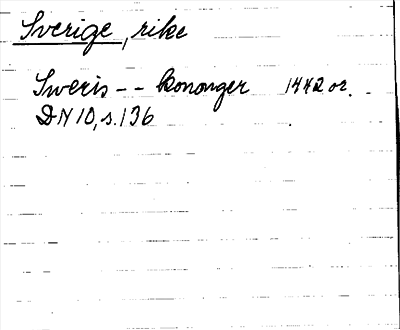 Sverige, rike
Sweris -- konunger 1442 or.
DN 10, s. 136